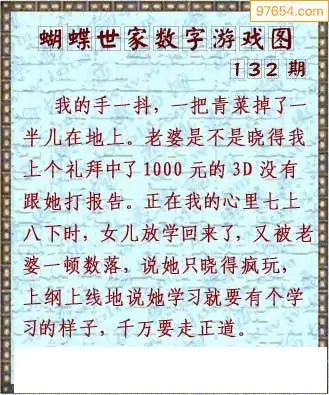 97654.com
蝴蝶世家数字游戏图
132期
我的手一抖，一把青菜掉了一
半儿在地上。老婆是不是晓得我
上个礼拜中了1000元的3D没有
跟她打报告。正在我的心里七上
八下时，女儿放学回来了，又被老
婆一顿数落，说她只晓得疯玩，
上纲上线地说她学习就要有个学
习的样子，千万要走正道。